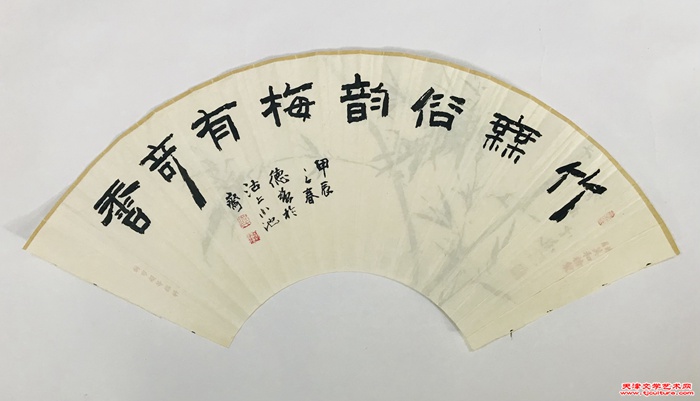 竹無俗韵梅有奇香
甲辰
之春
德 於
沽上小池
斋
天津文学艺术网
www.tjculture.com